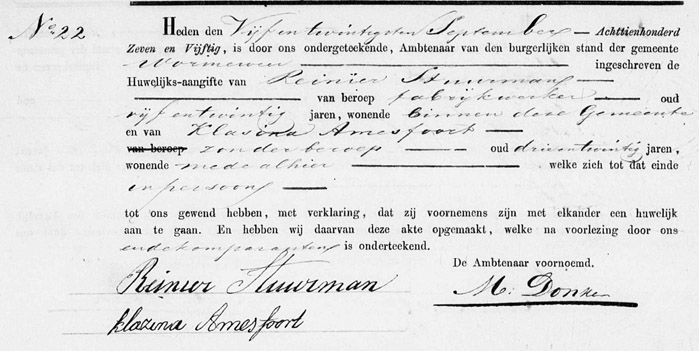 No 22
Heden den Vijfentwintigsten September Achttienhonderd
Zeven en Vijftig, is door ons ondergeteekende, Ambtenaar van den burgerlijken stand der gemeente
Wormerveer ingeschreven de
Huwelijks-aangifte van Reinier Stuurman
van beroep fabrijkwerker oud
vijfentwintig jaren, wonende binnen deze Gemeente
en van Klasina Amesfoort
van beroep zonder beroep oud drieentwintig jaren,
wonende mede alhier welke zich tot dat einde
in persoon
tot ons gewend hebben, met verklaring, dat zij voornemens zijn met elkander een huwelijk
aan te gaan. En hebben wij daarvan deze akte opgemaakt, welke na voorlezing door ons
en de komparanten is onderteekend.
De Ambtenaar voornoemd.
Reinier Stuurman
M. Donker
klazina Amesfoort